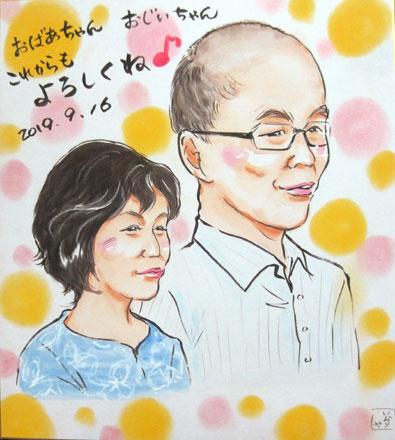 おばあちゃん おじいちゃん
これからも
よろしくね
2019.9.16